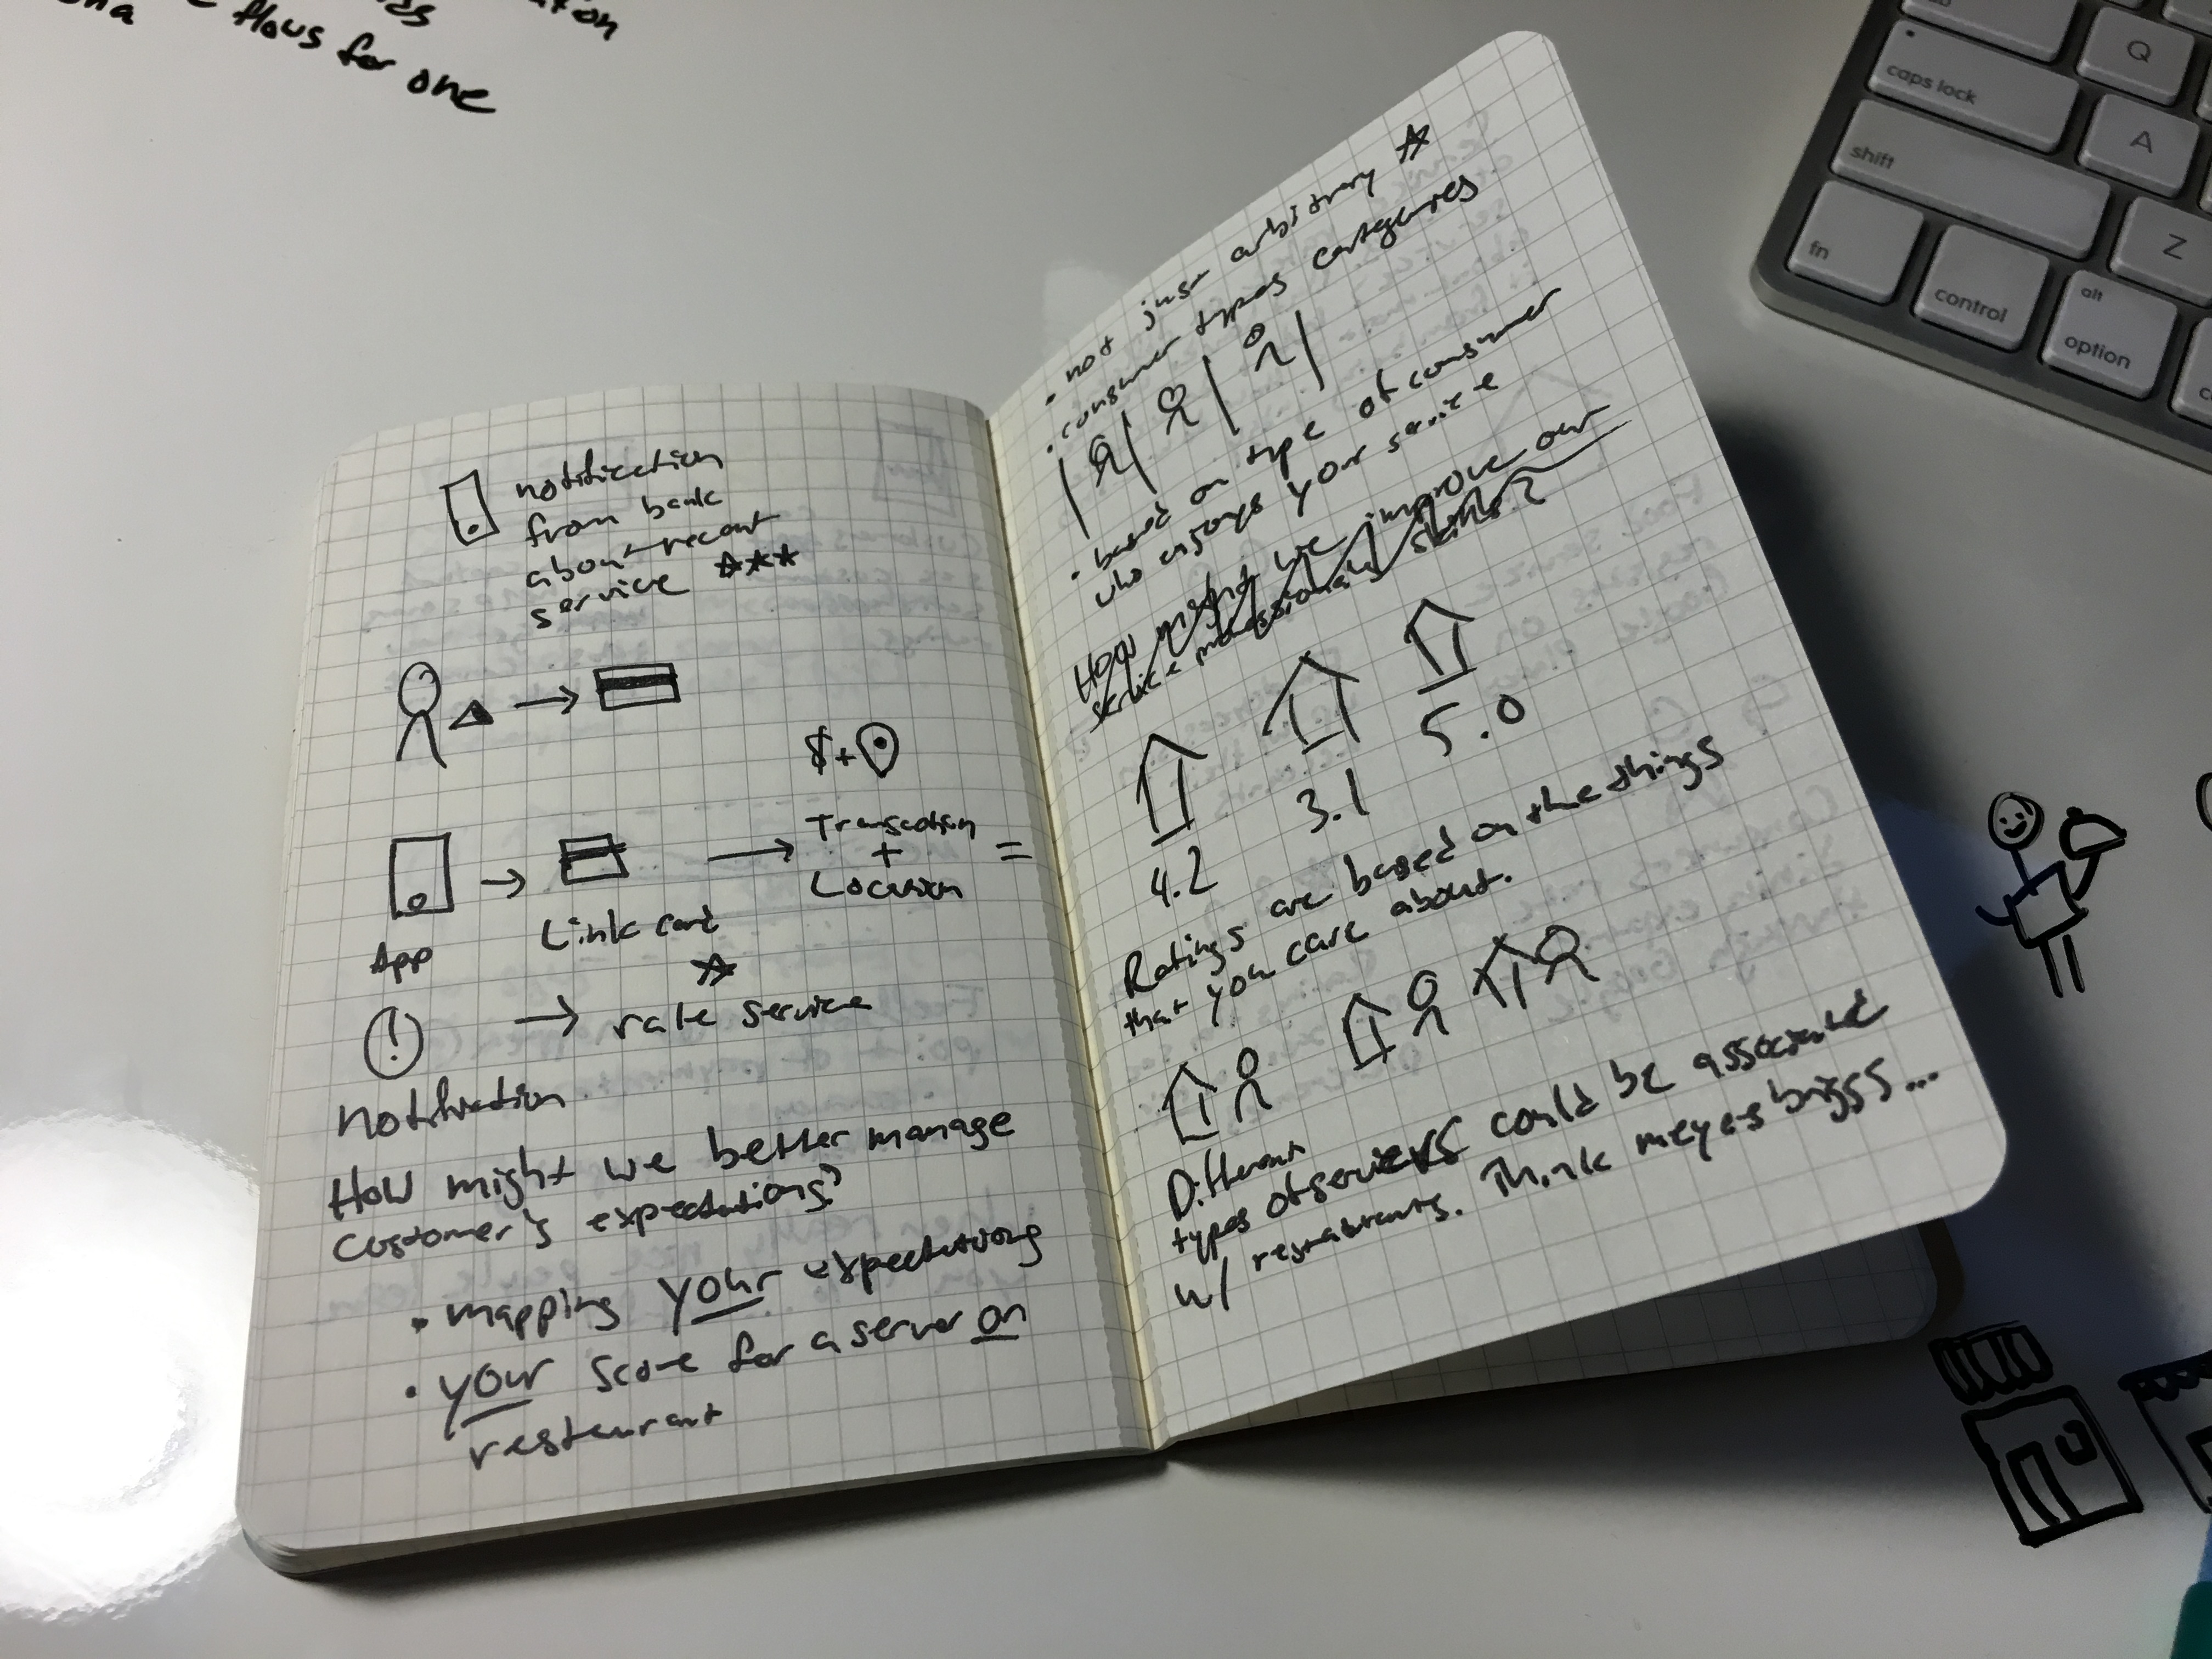 flows for one
notification
from bank
about recent
service
$+
Transaction
+
Location
=
App
Link card
!
rate service
Notification
How might we better manage
customer's expectations?
• mapping your expectations
• your score for a server on
restaurant
• not just arbitrary
• consumer types categories
• based on type of consumer
who enjoys your service
How might we improve our
service professionals skills?
4.2
3.1
5.0
Ratings are based on the things
that you care about.
Different
types of servers could be associated
w/ restaurants. Think meyes briggs...
Q
caps lock
A
shift
Z
fn
control
alt
option